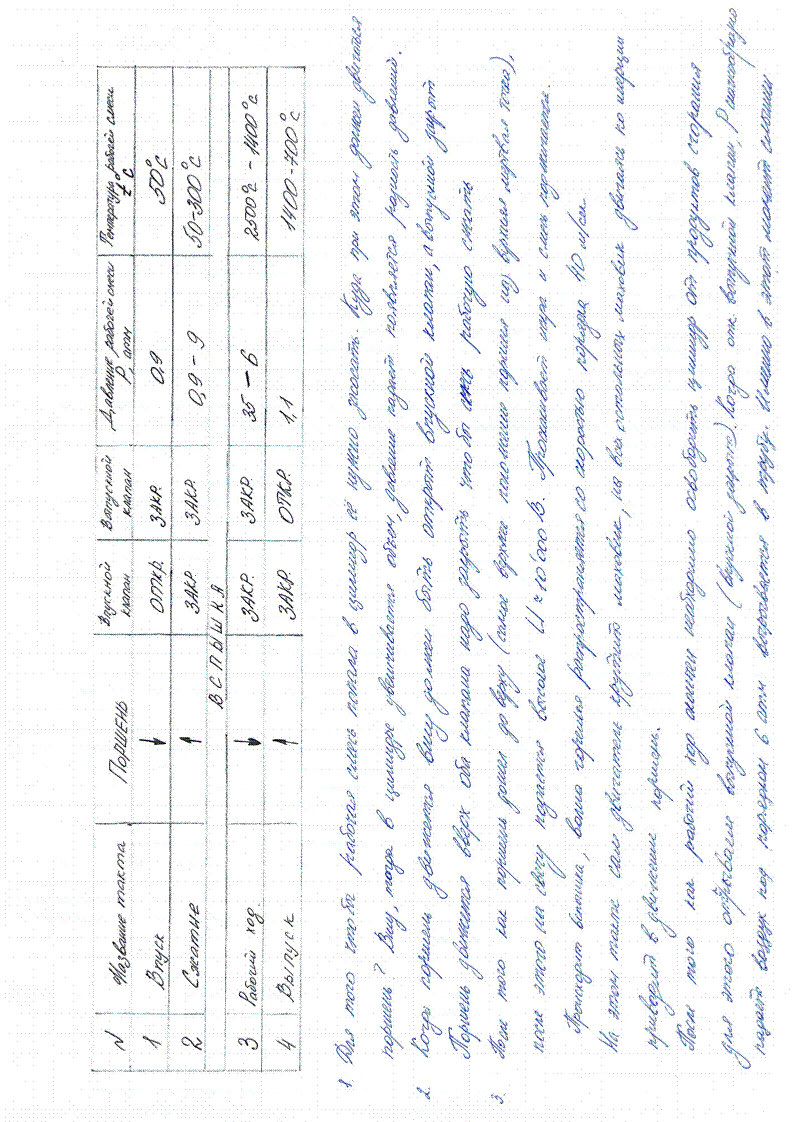 N Название такта ПОРШЕНЬ Впускной клапан Выпускной клапан Давление рабочей смеси P, атм Температура рабочей смеси t° C
1 Впуск ↓ ОТКР. ЗАКР. 0,9 50°C
2 Сжатие ↑ ЗАКР. ЗАКР. 0,9 – 9 50-300°C
ВСПЫШКА
3 Рабочий ход. ↓ ЗАКР. ЗАКР. 35 – 6 2500°C – 1400°C
4 Выпуск ↑ ЗАКР. ОТКР. 1,1 1400-700°C
1. Для того что бы рабочая смесь попала в цилиндр её нужно всосать. Куда при этом должен двигаться
поршень? Вниз, тогда в цилиндре увеличивается объем, давление падает появляется разность давлений.
2. Когда поршень движется вниз должен быть открыт впускной клапан, а выпускной закрыт
Поршень движется вверх оба клапана надо закрыть что бы рабочую сжать
3. После того как поршень дошел до верху (самое верхнее положение поршня наз верхняя мертвая точка),
после этого на свечу подается высокое U ≈ 10 000 В. Проскакивает искра и смесь поджигается.
Происходит вспышка, волна горения распространяется со скоростью порядка 40 м/сек.
На этом такте сам двигатель крутит маховик, на всех остальных маховик двигаясь по инерции
приводит в движение поршень.
После того как рабочий ход окончен необходимо освободить цилиндр от продуктов сгорания
для этого открываем выпускной клапан (впускной закрыт). Когда отк. выпускной клапан, P
воздух под порядком 6 атм вырывается в трубу. Именно в этот момент слышим